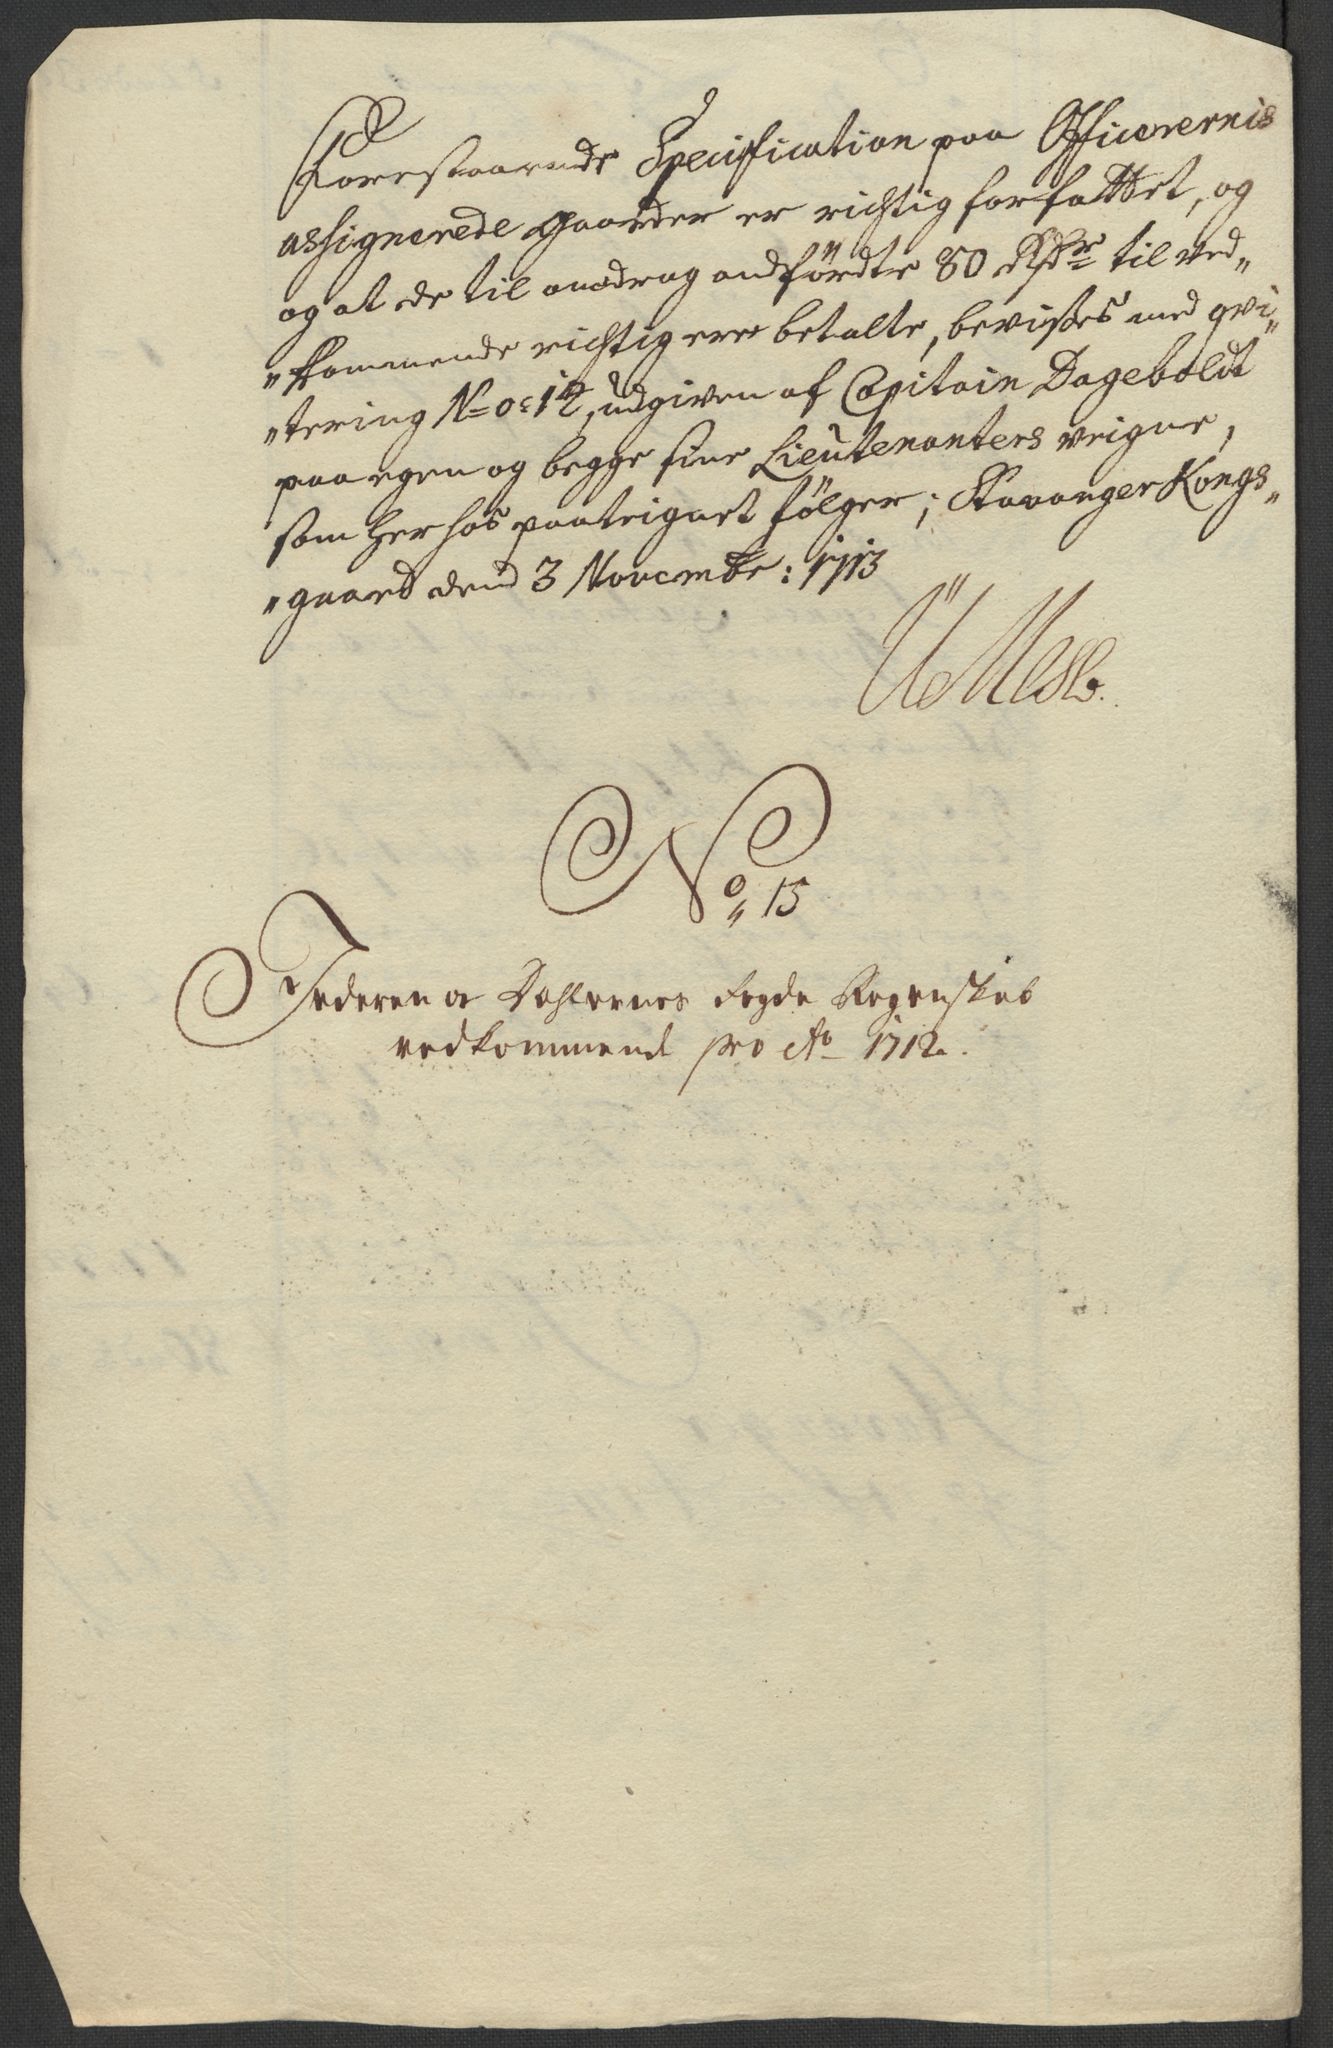 Forestaaende Specification paa Officerernis
assignerede gaarder er rigtig forfattet, og
og at de til anddrag andførdte 80 Rdr til ved„
„kommende rigtig ere betalte, bevises med qvi„
„tering No: 12, udgiven af Capitain Dageboldt
paa egen og begge sine Lieutenanters veigne,
som her hos paateignet følger; Stavanger Kongs„
„gaard dend 3 Novembr: 1713
No 15
Jederen oc Dahlernes fogde Regenskab
vedkommend pro Ao 1712.